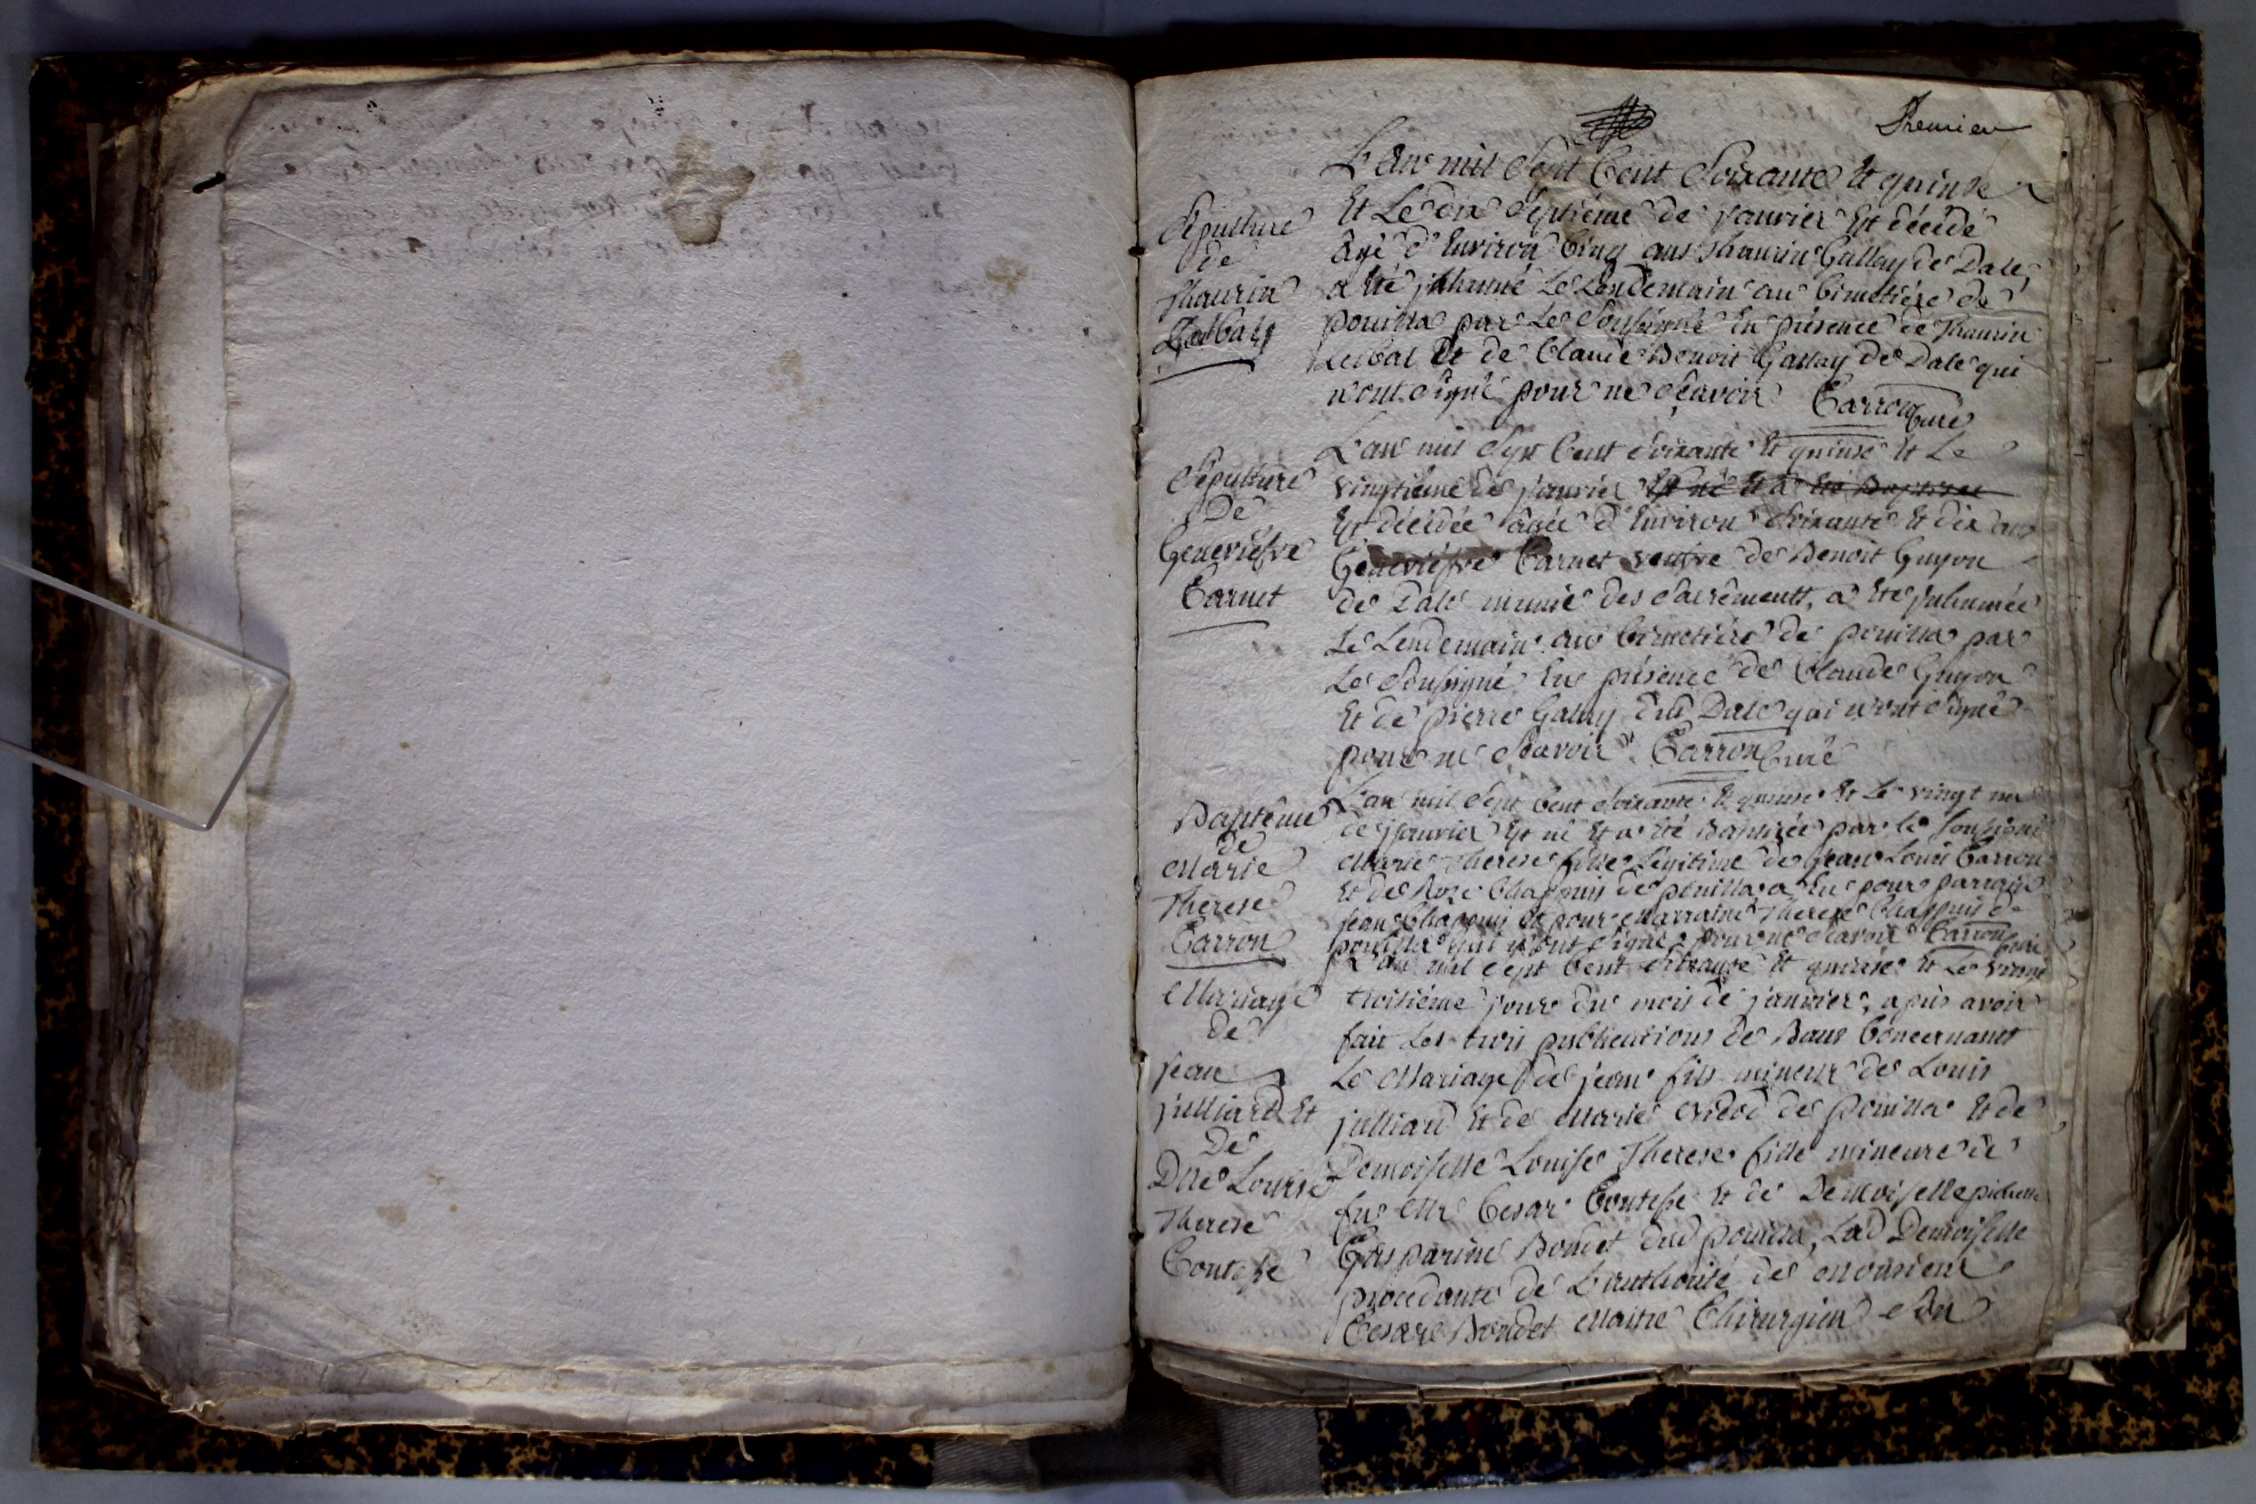 Premier
L'an mil Sept Cent Soixante Et quinse
Et Le dix Septiéme de janvier Est décédé
âgé d'Environ Cinq ans Thaurin Gallay de Dale,
a été jnhumé Le Lendemain au Cimetiére de
pouilla par Le Soussigné En présence de Thaurin
Et de Claude Benoit Gallay de Dale qui
n'ont signé pour ne sçavoir Carron Curé
Sépulture
de
Thaurin
L'an mil Sept Cent Soixante Et quinse Et Le
vingtiéme de janvier Est né Et a été Baptisée
Est décédée âgée d'Environ Soixante Et dix ans
Geneviéfve Carnet veufve de Benoit Guyon
de Dale munie des Sacréments, a Eté jnhumée
Le Lendemain au Cimetiére de pouilla par
Le Soussigné En présence de Claude Guyon
Et de pierre Gallay dud Dale qui n'ont signé
pour ne Sçavoir. Carron Curé
Sépulture
De
Geneviéfve
Carnet
L'an mil Sept Cent Soixante Et quinse Et Le vingt un
de janvier Est né Et a été Baptisée par le Soussigné
Marie Therese fille Légitime de Jean Louis Carron
Et de Roze Chappuis de pouilla a Eu pour parrain
jean Chappuis Et pour Marraine Therese Chappuis de
pouilla qui n'ont signé pour ne sçavoir Carron Curé
Baptême
de
Marie
Therese
Carron
L'an mil Sept Cent Soixante Et quinse Et Le vingt
troisiéme jour du mois de janvier, apris avoir
fait Les trois publications de Bans Concernant
Le Mariage de jean fils mineur de Louis
julliard Et de Marie de pouilla Et de
Demoiselle Louise Therese fille mineure de
fu Mr Cesar Contesse Et de Demoiselle
Gasparine Boudet dud pouilla, Lad Demoiselle
procedante de L'authorité de monsieur
Cesar Boudet Maitre Chirurgien
Mariage
de
jean
julliard Et
De
Dlle Louise
Therese
Contesse